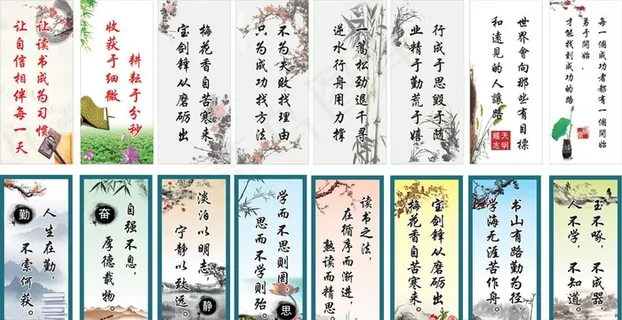 让读书成为习惯
让自信相伴每一天
耕耘于分秒
收获于细微
梅花香自苦寒来
宝剑锋从磨砺出
不为失败找理由
只为成功找方法
一篙松劲退千寻
逆水行舟用力撑
行成于思毁于随
业精于勤荒于嬉
世界會向那些有目標
和遠見的人讓路
每一個成功者都有一個開始
勇于開始
才能找到成功的路
勤
人生在勤，
不索何获。
奋
自强不息，
厚德载物。
淡泊以明志，
宁静以致远。
静
学而不思则罔，
思而不学则殆。
思
读书之法，
在循序而渐进，
熟读而精思。
宝剑锋从磨砺出，
梅花香自苦寒来。
书山有路勤为径，
学海无涯苦作舟。
玉不琢，不成器。
人不学，不知道。